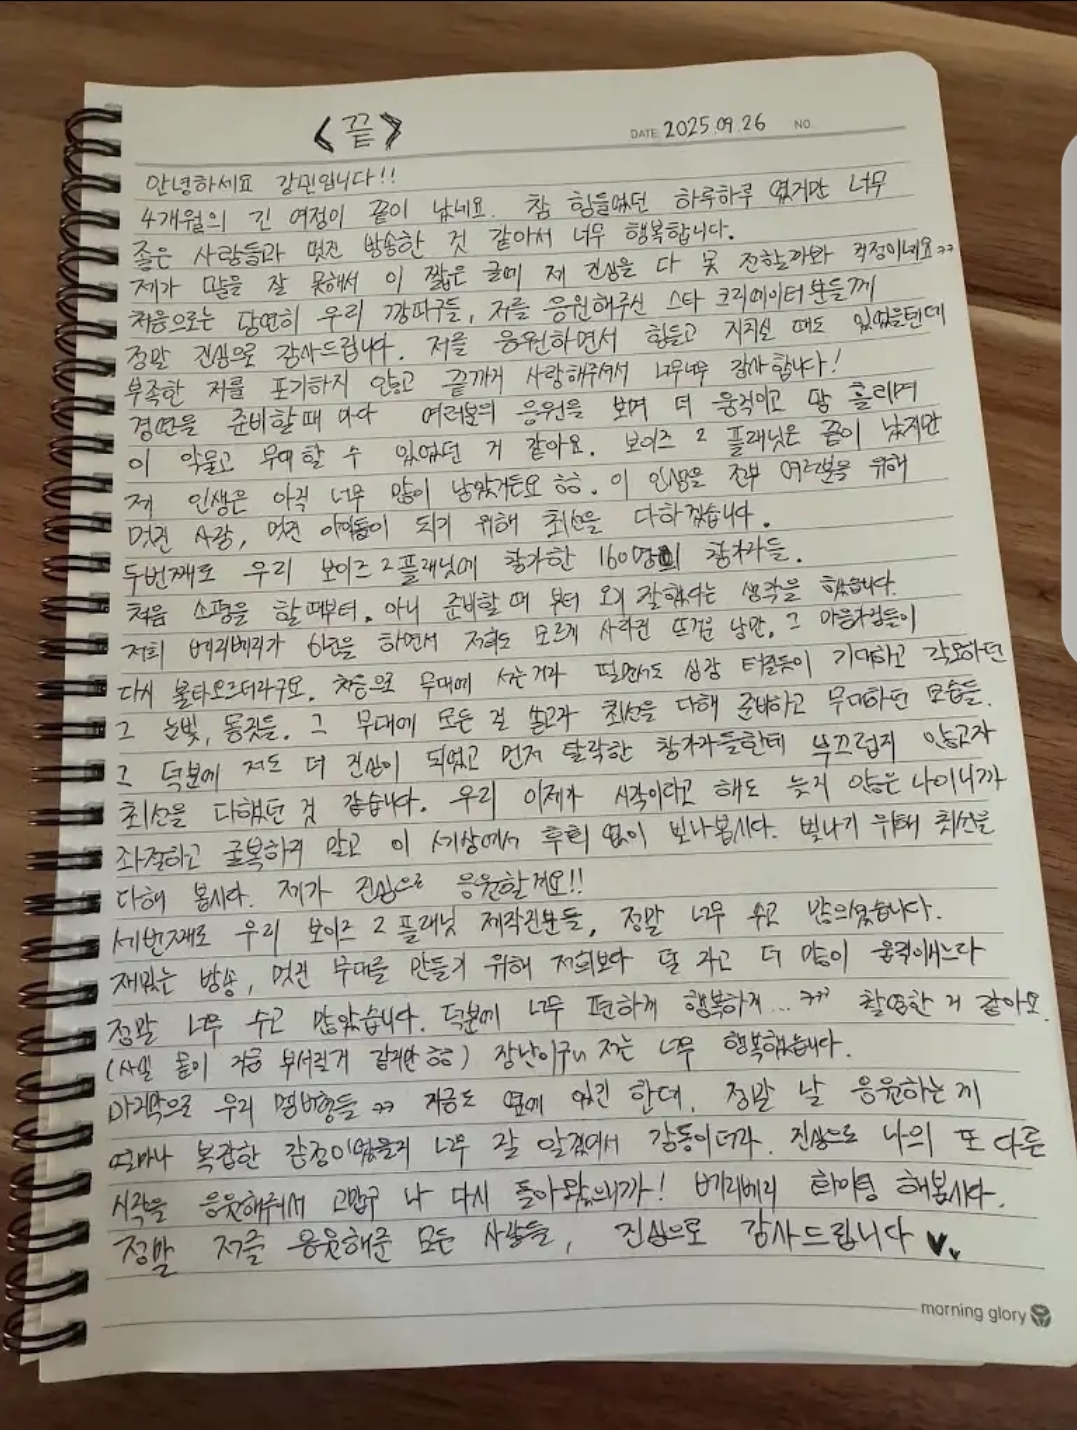 <끝>
DATE 2025.09.26 NO.
안녕하세요 강민입니다!!
4개월의 긴 여정이 끝이 났네요. 참 힘들었던 하루하루 였지만 너무
좋은 사람들과 멋진 방송한 것 같아서 너무 행복합니다.
제가 말을 잘 못해서 이 짧은 글에 제 진심을 다 못 전할까봐 걱정이네요ㅋㅋ
처음으로는 당연히 우리 깡파구들, 저를 응원해주신 스타 크리에이터분들께
정말 진심으로 감사드립니다. 저를 응원하면서 힘들고 지치실 때도 있었을텐데
부족한 저를 포기하지 않고 끝까지 사랑해주셔서 너무너무 감사합니다!
경연을 준비할때 마다 여러분의 응원을 보며 더 움직이고 땀 흘리며
이 악물고 무대할 수 있었던 거 같아요. 보이즈 2 플래닛은 끝이 났지만
저 인생은 아직 너무 많이 남았거든요 ㅎㅎ. 이 인생을 전부 여러분을 위해
멋진 사람, 멋진 아이돌이 되기 위해 최선을 다하겠습니다.
두번째로 우리 보이즈 2 플래닛에 참가한 160명의 참가자들.
처음 소평을 할때부터. 아니 준비할 때 부터 오기 잘했다는 생각을 했습니다.
저희 베리베리가 6년을 하면서 저희도 모르게 사라진 뜨거운 낭만, 그 마음가짐들이
다시 불타오르더라구요. 처음으로 무대에 서는거라 떨면서도 심장 터질듯이 기대하고 각오하던
그 눈빛, 몸짓들. 그 무대에 모든 걸 쏟고자 최선을 다해 준비하고 무대하던 모습들.
그 덕분에 저도 더 진심이 되었고 먼저 탈락한 참가자들한테 부끄럽지 않고자
최선을 다했던 것 같습니다. 우리 이제가 시작이라고 해도 늦지 않은 나이니까
좌절하고 굴복하지 말고 이 세상에서 후회 없이 빛나봅시다. 빛나기 위해 최선을
다해 봅시다. 제가 진심으로 응원할게요!!
세번째로 우리 보이즈 2 플래닛 제작진분들, 정말 너무 수고 많으셨습니다.
재밌는 방송, 멋진 무대를 만들기 위해 저희보다 덜 자고 더 많이 움직이느라
정말 너무 수고 많았습니다. 덕분에 너무 편하게 행복하게... ㅋㅋㅋ 촬영한 거 같아요.
(사실 몸이 지금 부서질거 같지만 ㅎㅎ) 장난이구 저는 너무 행복했습니다.
마지막으로 우리 멤버형들 ㅋㅋ 지금도 옆에 있긴 한데, 정말 날 응원하는 게
얼마나 복잡한 감정이었을지 너무 잘 알겠어서 감동이더라. 진심으로 나의 또 다른
시작을 응원해줘서 고맙구 나 다시 돌아왔으니까! 베리베리 화이팅 해봅시다.
정말 저를 응원해준 모든 사람들, 진심으로 감사드립니다 ♥♥
morning glory